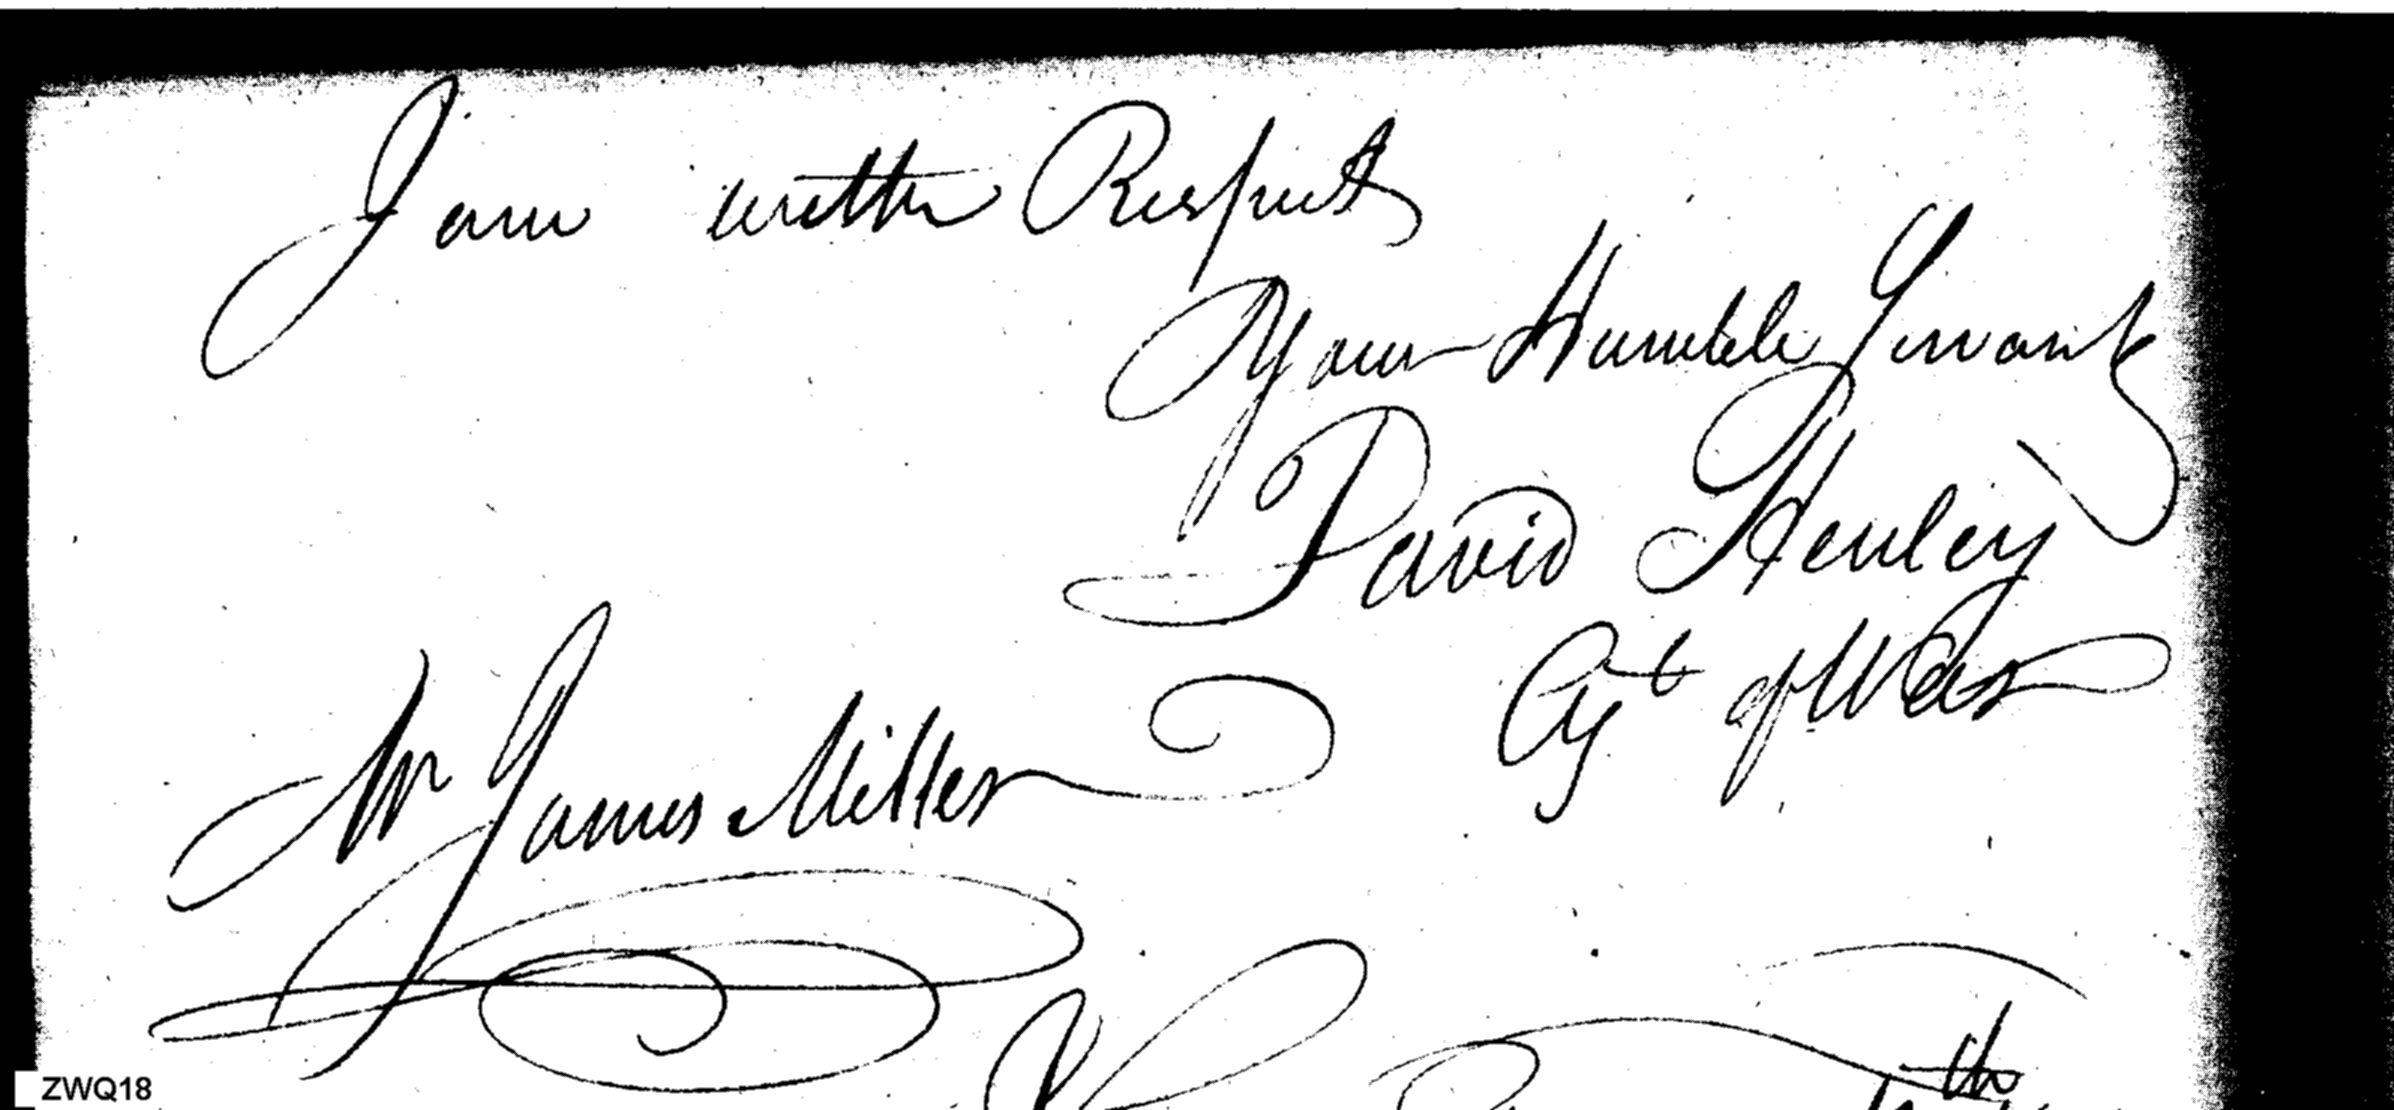 I am with Respect
Your Humble Servant
David Henley
Agt of War
Mr James Miller
th
ZWQ18